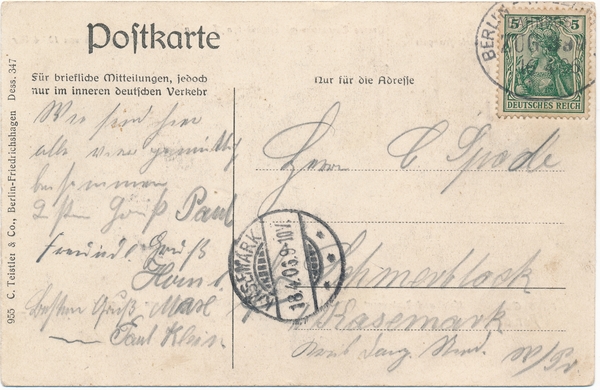 Postkarte
Für briefliche Mitteilungen, jedoch
nur im inneren deutschen Verkehr
Nur für die Adresse
5 5
DEUTSCHES REICH
BERLIN
955 C. Teistler & Co., Berlin-Friedrichshagen Dess. 347
Wir sind hier
alle vier gemütlich
beisammen
Gruß Paul
Gruß
besten Gruß
Paul
Herrn C Spode
Schmerblock
Kasemark
KÄSEMARK
18.4.06.9-10V
W/Pr